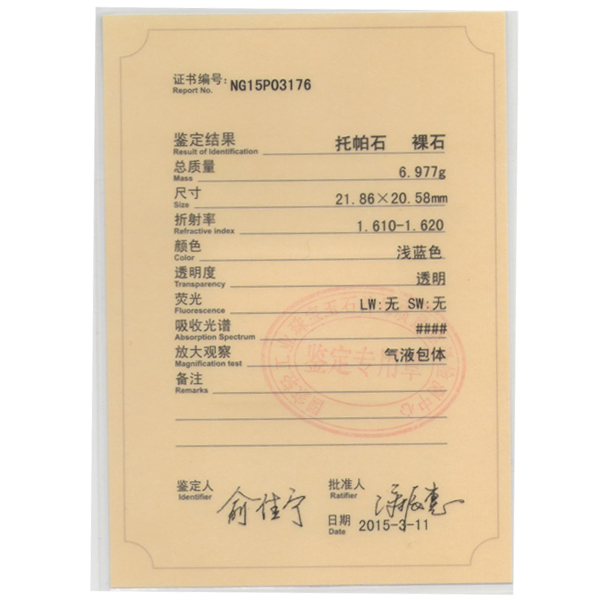 证书编号: NG15P03176
Report No.
鉴定结果 托帕石 裸石
Result of Identification
总质量 6.977g
Mass
尺寸 21.86×20.58mm
Size
折射率 1.610-1.620
Refractive index
颜色 浅蓝色
Color
透明度 透明
Transparency
荧光 LW:无 SW:无
Fluorescence
吸收光谱 ####
Absorption Spectrum
放大观察 气液包体
Magnification test
备注
Remarks
鉴定专用章
鉴定人 俞佳宁 批准人
Identifier Ratifier
日期 2015-3-11
Date